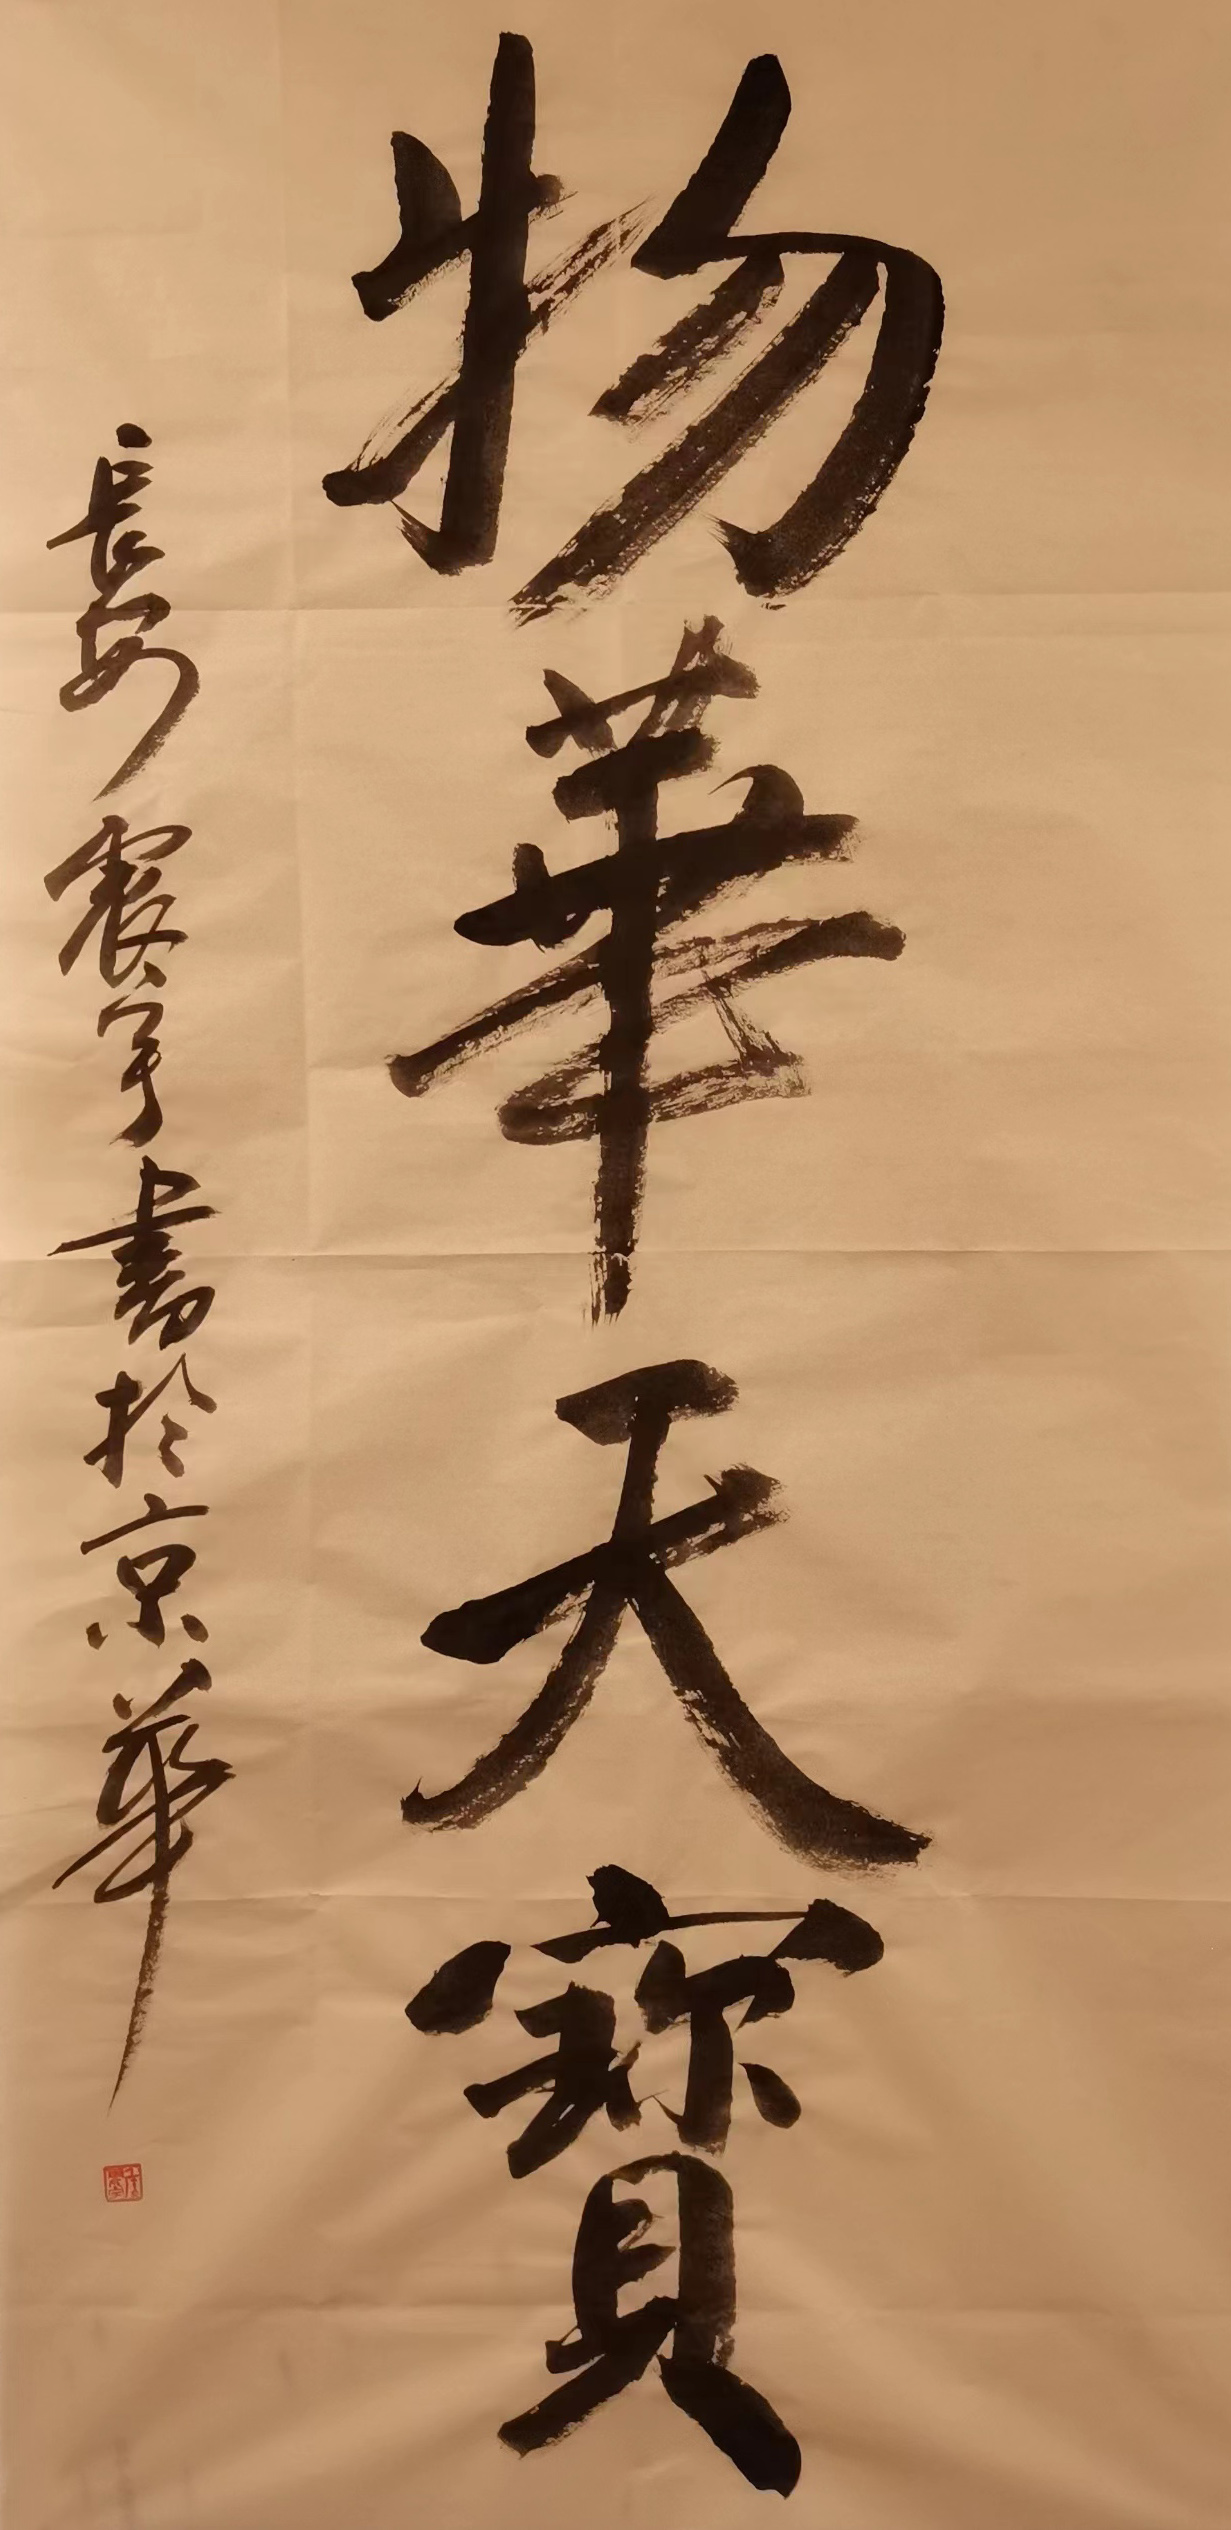 物華天寳
長安震宇書於京華